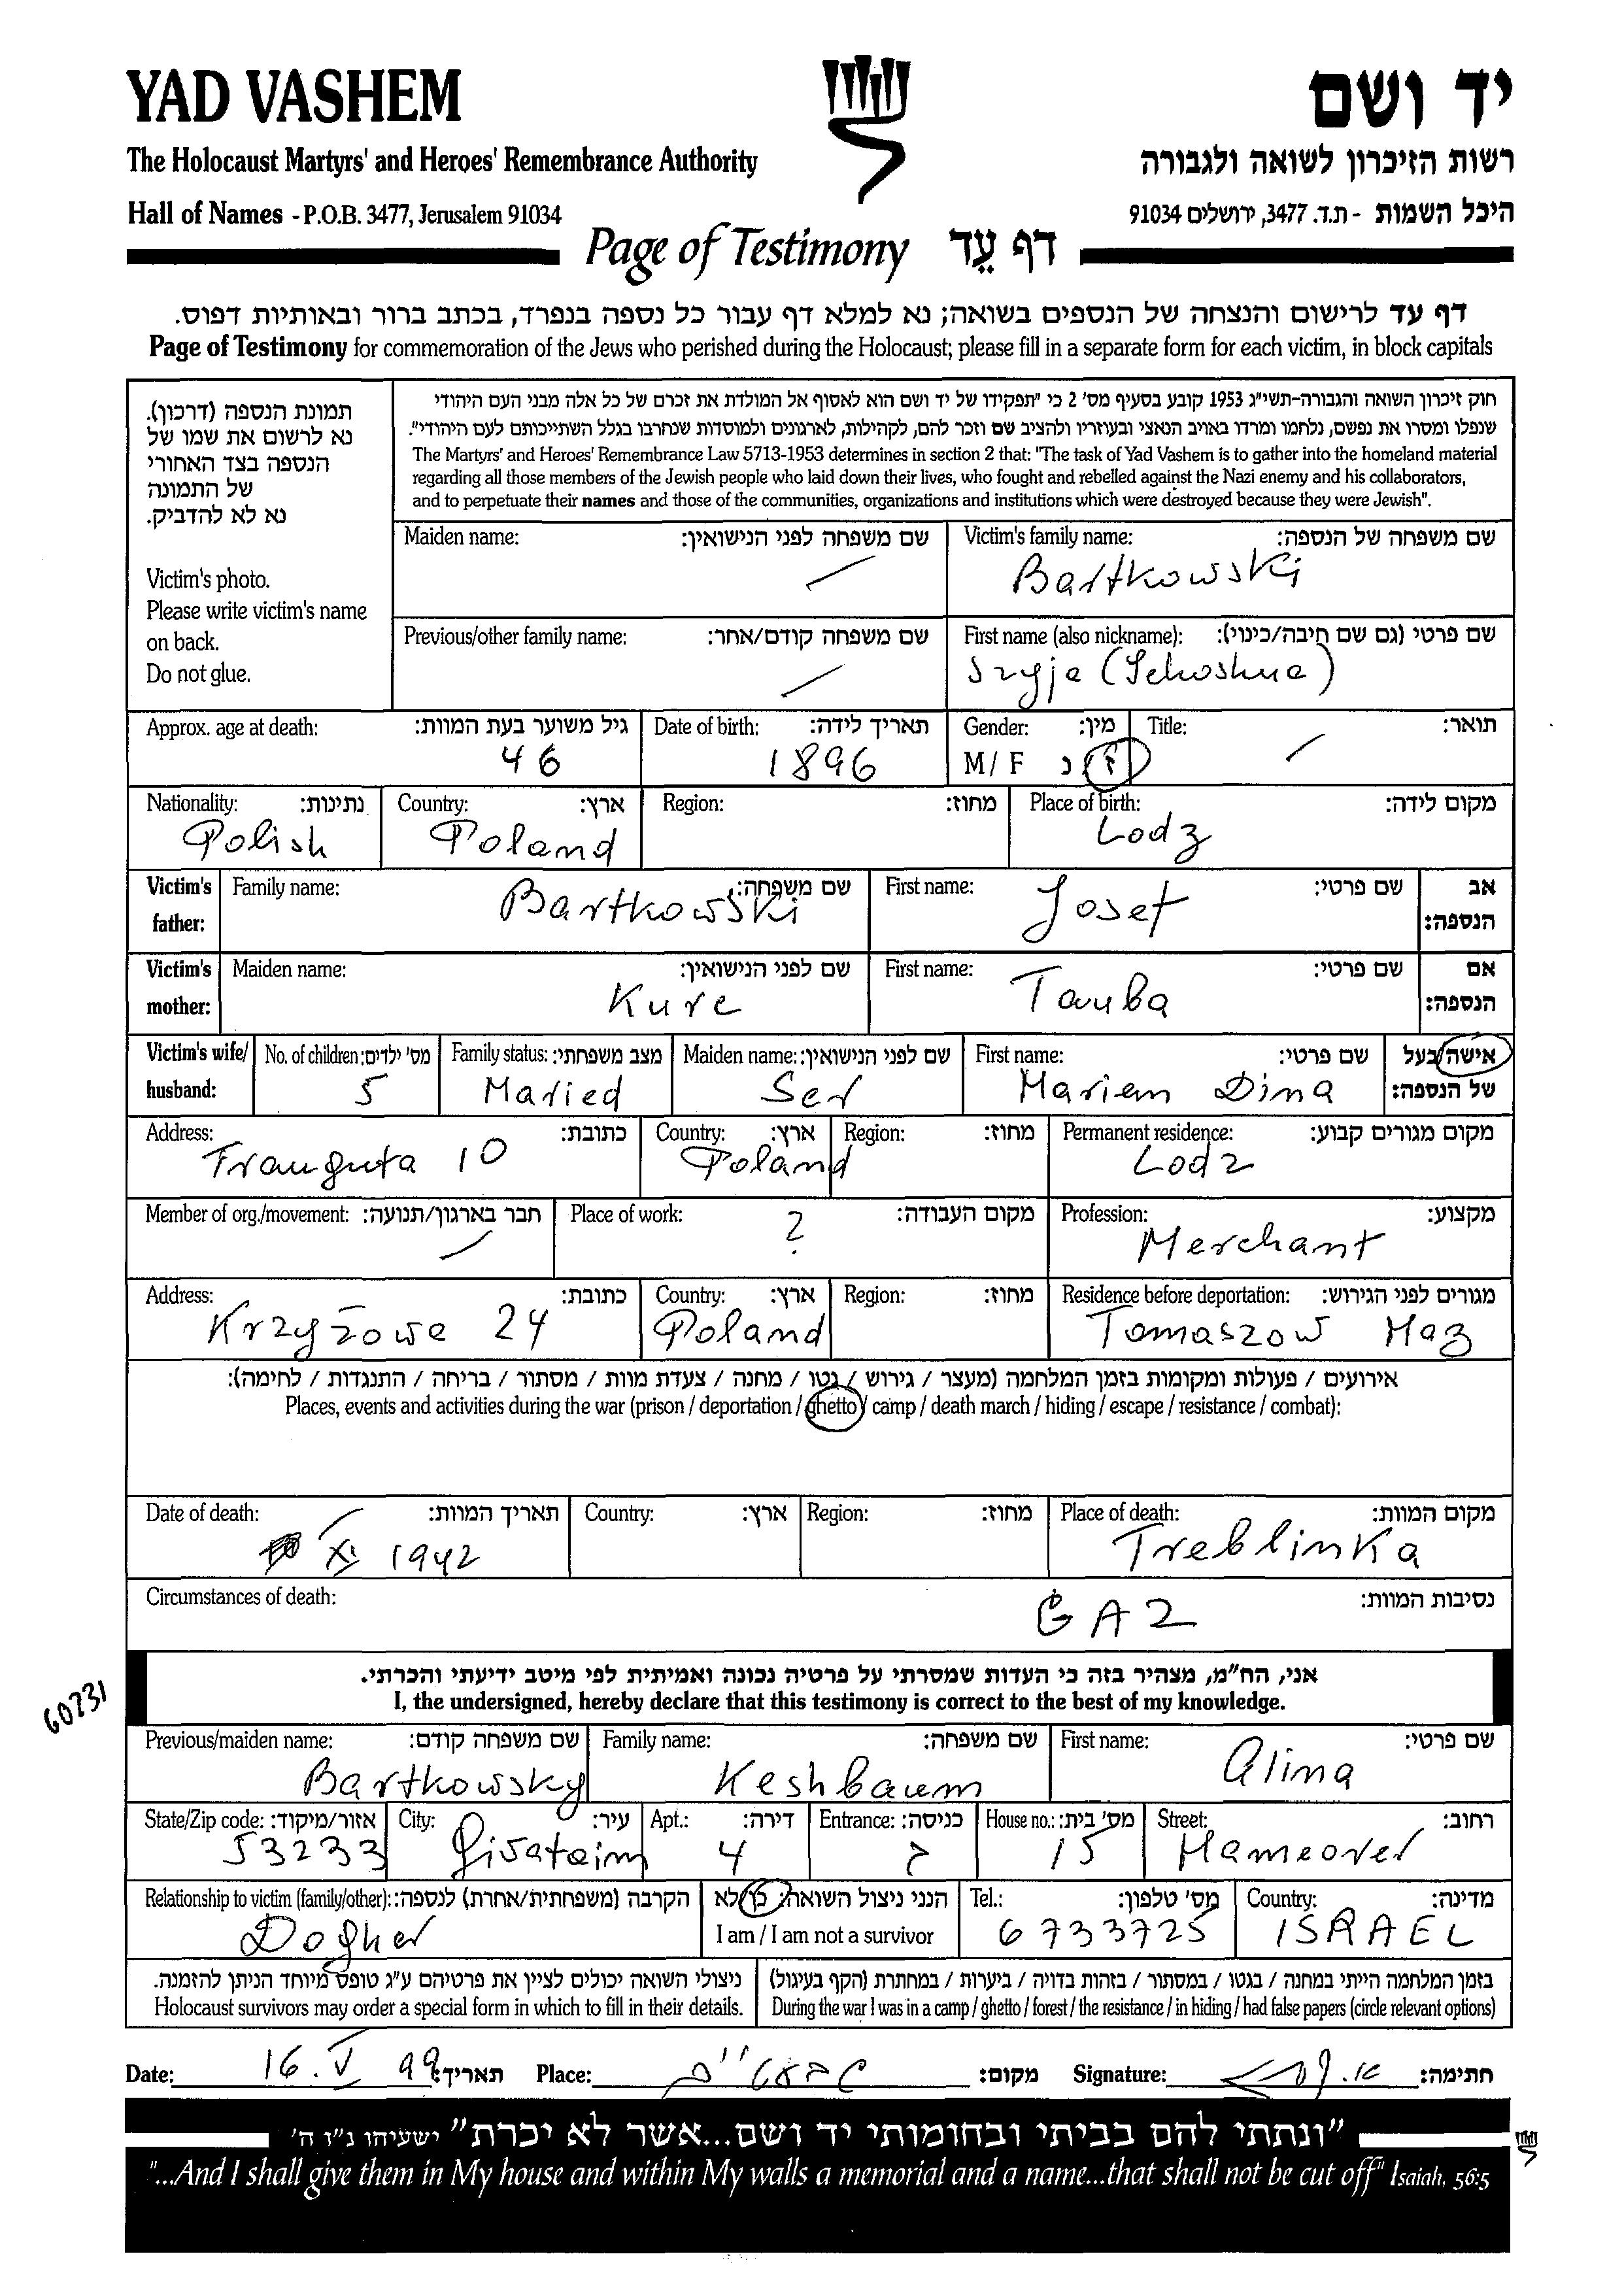 YAD VASHEM
יד ושם
The Holocaust Martyrs' and Heroes' Remembrance Authority
רשות הזיכרון לשואה ולגבורה
Hall of Names - P.O.B. 3477, Jerusalem 91034
היכל השמות - ת.ד. 3477, ירושלים 91034
Page of Testimony דף עֵד
דף עד לרישום והנצחה של הנספים בשואה; נא למלא דף עבור כל נספה בנפרד, בכתב ברור ובאותיות דפוס.
Page of Testimony for commemoration of the Jews who perished during the Holocaust; please fill in a separate form for each victim, in block capitals
תמונת הנספה (דרכון).
נא לרשום את שמו של
הנספה בצד האחורי
של התמונה
נא לא להדביק.
Victim's photo.
Please write victim's name
on back.
Do not glue.
חוק זיכרון השואה והגבורה-תשי"ג 1953 קובע בסעיף מס' 2 כי "תפקידו של יד ושם הוא לאסוף אל המולדת את זכרם של כל אלה מבני העם היהודי
שנפלו ומסרו את נפשם, נלחמו ומרדו באויב הנאצי ובעוזריו ולהציב שם וזכר להם, לקהילות, לארגונים ולמוסדות שנחרבו בגלל השתייכותם לעם היהודי".
The Martyrs' and Heroes' Remembrance Law 5713-1953 determines in section 2 that: "The task of Yad Vashem is to gather into the homeland material
regarding all those members of the Jewish people who laid down their lives, who fought and rebelled against the Nazi enemy and his collaborators,
and to perpetuate their names and those of the communities, organizations and institutions which were destroyed because they were Jewish".
Maiden name: שם משפחה לפני הנישואין:
Victim's family name: שם משפחה של הנספה:
Bartkowski
Previous/other family name: שם משפחה קודם/אחר:
First name (also nickname): שם פרטי (גם שם חיבה/כינוי):
Szyja (Jehoshua)
Approx. age at death: גיל משוער בעת המוות:
46
Date of birth: תאריך לידה:
1896
Gender: מין:
M / F ז / נ
Title: תואר:
Nationality: נתינות:
Polish
Country: ארץ:
Poland
Region: מחוז:
Place of birth: מקום לידה:
Lodz
Victim's father:
Family name: שם משפחה:
Bartkowski
First name: שם פרטי:
Josef
אב הנספה:
Victim's mother:
Maiden name: שם לפני הנישואין:
Kurc
First name: שם פרטי:
Tauba
אם הנספה:
Victim's wife/ husband:
No. of children: מס' ילדים:
5
Family status: מצב משפחתי:
Maried
Maiden name: שם לפני הנישואין:
Ser
First name: שם פרטי:
Mariem Dina
אישה/בעל של הנספה:
Address: כתובת:
Trauguta 10
Country: ארץ:
Poland
Region: מחוז:
Permanent residence: מקום מגורים קבוע:
Lodz
Member of org./movement: חבר בארגון/תנועה:
Place of work: מקום העבודה:
?
Profession: מקצוע:
Merchant
Address: כתובת:
Krzyżowa 24
Country: ארץ:
Poland
Region: מחוז:
Residence before deportation: מגורים לפני הגירוש:
Tomaszow Maz
אירועים / פעולות ומקומות בזמן המלחמה (מעצר / גירוש / גטו / מחנה / צעדת מוות / מסתור / בריחה / התנגדות / לחימה):
Places, events and activities during the war (prison / deportation / ghetto / camp / death march / hiding / escape / resistance / combat):
Date of death: תאריך המוות:
XI 1942
Country: ארץ:
Region: מחוז:
Place of death: מקום המוות:
Treblinka
Circumstances of death: נסיבות המוות:
GAZ
60731
אני, הח"מ, מצהיר בזה כי העדות שמסרתי על פרטיה נכונה ואמיתית לפי מיטב ידיעתי והכרתי.
I, the undersigned, hereby declare that this testimony is correct to the best of my knowledge.
Previous/maiden name: שם משפחה קודם:
Bartkowsky
Family name: שם משפחה:
Keshbaum
First name: שם פרטי:
Alina
State/Zip code: אזור/מיקוד:
53233
City: עיר:
Givataim
Apt.: דירה:
4
Entrance: כניסה:
House no.: מס' בית:
15
Street: רחוב:
Hameorer
Relationship to victim (family/other): הקרבה (משפחתית/אחרת) לנספה:
Dogher
הנני ניצול השואה: כן/לא
I am / I am not a survivor
Tel.: מס' טלפון:
6733725
Country: מדינה:
ISRAEL
ניצולי השואה יכולים לציין את פרטיהם ע"ג טופס מיוחד הניתן להזמנה.
Holocaust survivors may order a special form in which to fill in their details.
בזמן המלחמה הייתי במחנה / בגטו / במסתור / בזהות בדויה / ביערות / במחתרת (הקף בעיגול)
During the war I was in a camp / ghetto / forest / the resistance / in hiding / had false papers (circle relevant options)
Date: 16.V 99 תאריך: Place: גבעטיים מקום: Signature: חתימה:
"ונתתי להם בביתי ובחומותי יד ושם...אשר לא יכרת" ישעיהו נ"ו ה'
"...And I shall give them in My house and within My walls a memorial and a name...that shall not be cut off" Isaiah, 56:5